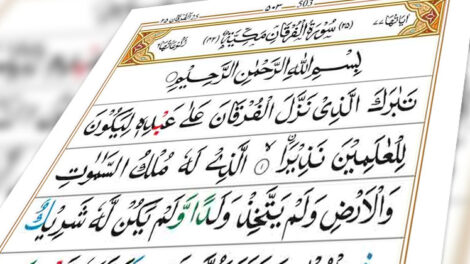 ٥٠٣
503
اٰیَاتُهَا ٧٧ (٢٥) سُوْرَةُ الْفُرْقَانِ مَكِّيَّةٌ (٤٢)
بِسْمِ اللّٰهِ الرَّحْمٰنِ الرَّحِيْمِ
تَبٰرَكَ الَّذِىْ نَزَّلَ الْفُرْقَانَ عَلٰى عَبْدِهٖ لِيَكُوْنَ
لِلْعٰلَمِيْنَ نَذِيْرًا ۙ﴿١﴾ الَّذِىْ لَهٗ مُلْكُ السَّمٰوٰتِ
وَالْاَرْضِ وَلَمْ يَتَّخِذْ وَلَدًا وَّلَمْ يَكُنْ لَّهٗ شَرِيْكٌ